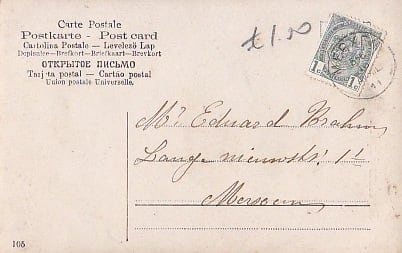 Carte Postale
Postkarte - Post card
Cartolina Postale — Levelező Lap
Dopisnice—Brefkort—Briefkaart—Brevkort
ОТКРЫТОЕ ПИСЬМО
Tarjeta postal — Cartão postal
Union postale Universelle.
£1.50
1c 1c
Mr Eduard Brahm
Lange nieuwstr 11
Merxem
105